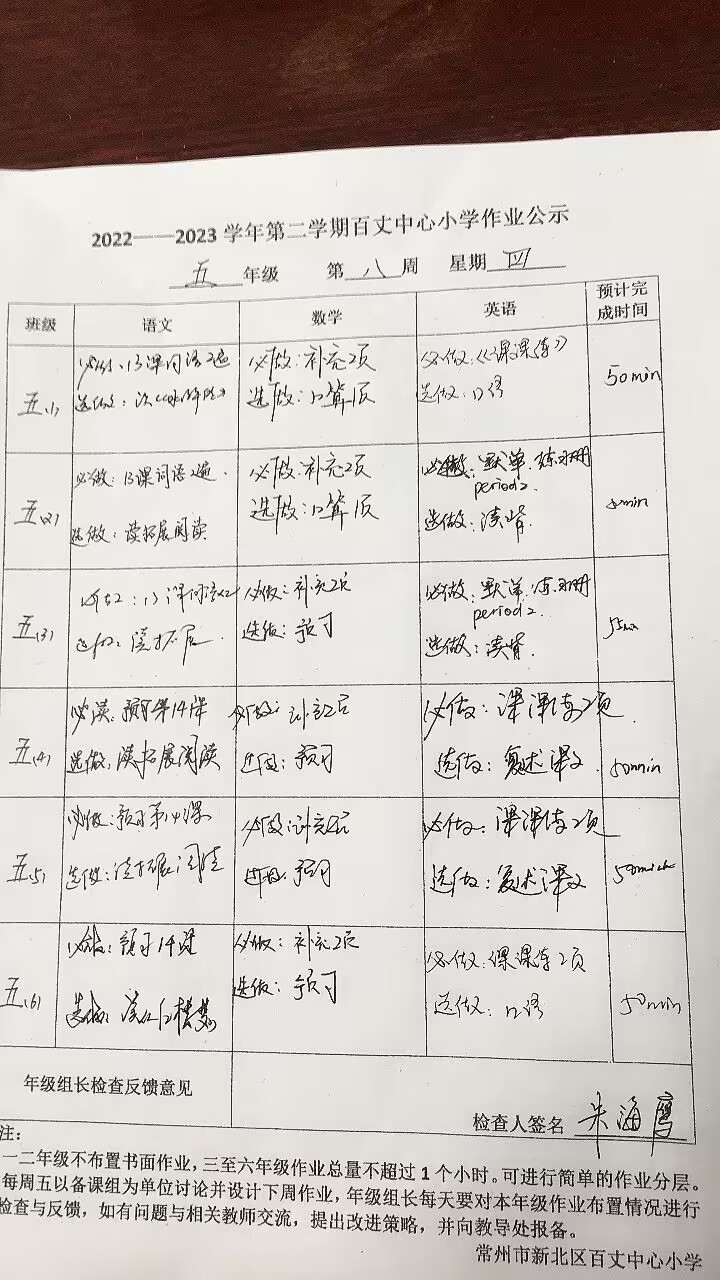 2022——2023 学年第二学期百丈中心小学作业公示
五 年级 第 八 周 星期 四
班级 语文 数学 英语 预计完成时间
五(1)
必做:13课词语2遍
选做:
必做:补充2页
选做:口算1页
必做:《课课练》
选做:口语
50min
五(2)
必做:13课词语2遍.
选做:读拓展阅读
必做:补充2页
选做:口算1页
必做:默单.练习册
period2.
选做:读背.
min
五(3)
必做:13课词语x2
选做:读拓展.
必做:补充2页
选做:预习
必做:默单.练习册
period2.
选做:读背.
55min
五(4)
预习第14课
选做:读拓展阅读
必做:补充2页
选做:预习
必做:课课练2页.
选做:复述课文.
50min
五(5)
必做:预习第14课
选做:读拓展阅读
必做:补充2页
选做:预习
必做:课课练2页
选做:复述课文
50min
五(6)
必做:预习14课
选做:读红楼梦
必做:补充2页
选做:预习
必做:课课练2页
选做:口语
50min
年级组长检查反馈意见
检查人签名 朱海鹰
注:
一二年级不布置书面作业，三至六年级作业总量不超过 1 个小时。可进行简单的作业分层。
每周五以备课组为单位讨论并设计下周作业，年级组长每天要对本年级作业布置情况进行
检查与反馈，如有问题与相关教师交流，提出改进策略，并向教导处报备。
常州市新北区百丈中心小学